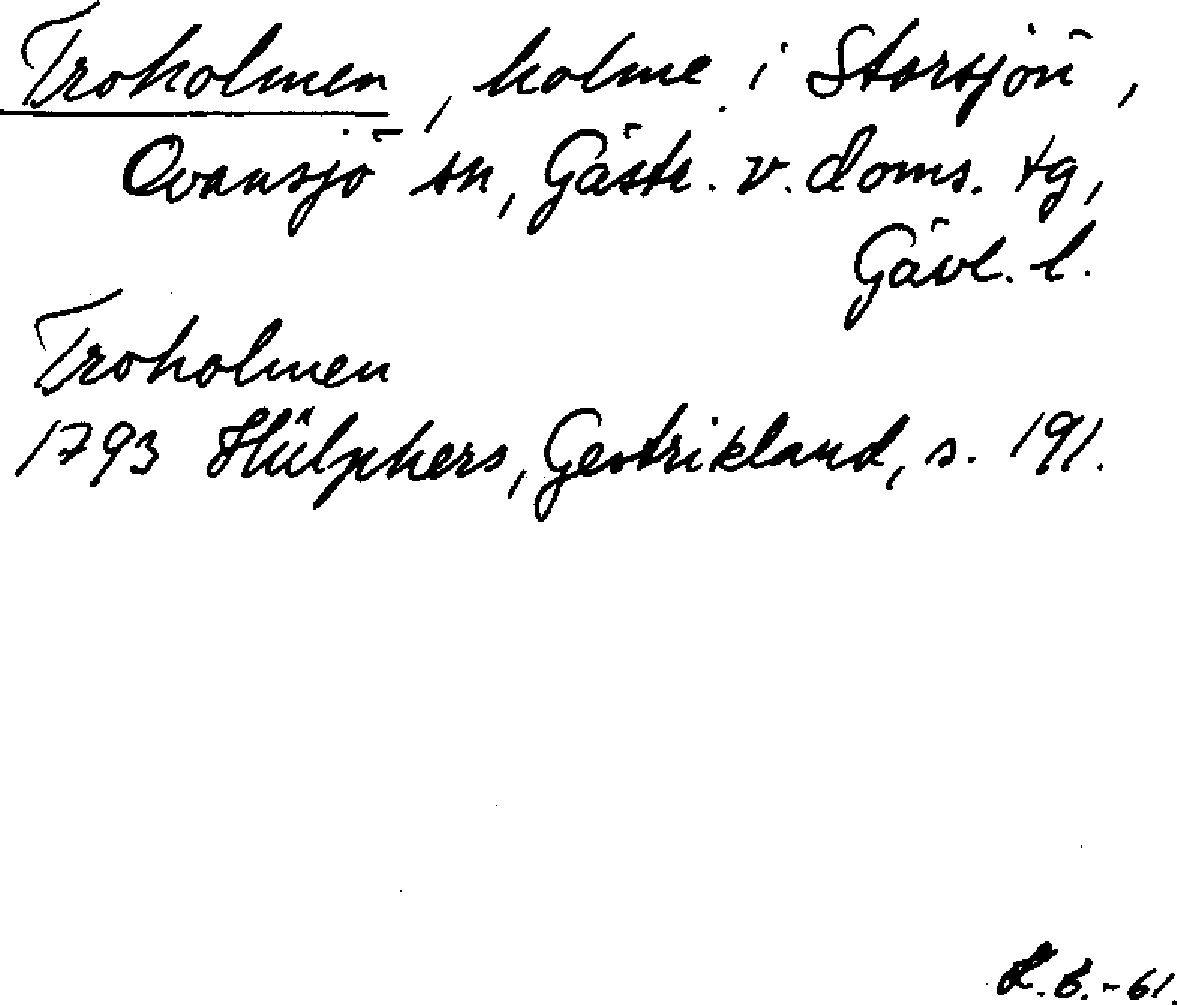 Troholmen, holme i Storsjön,
Ovansjö sn, Gästr. v. doms. tg,
Gävl. l.
Troholmen
1793 Hülphers, Gestrikland, s. 191.
-61.